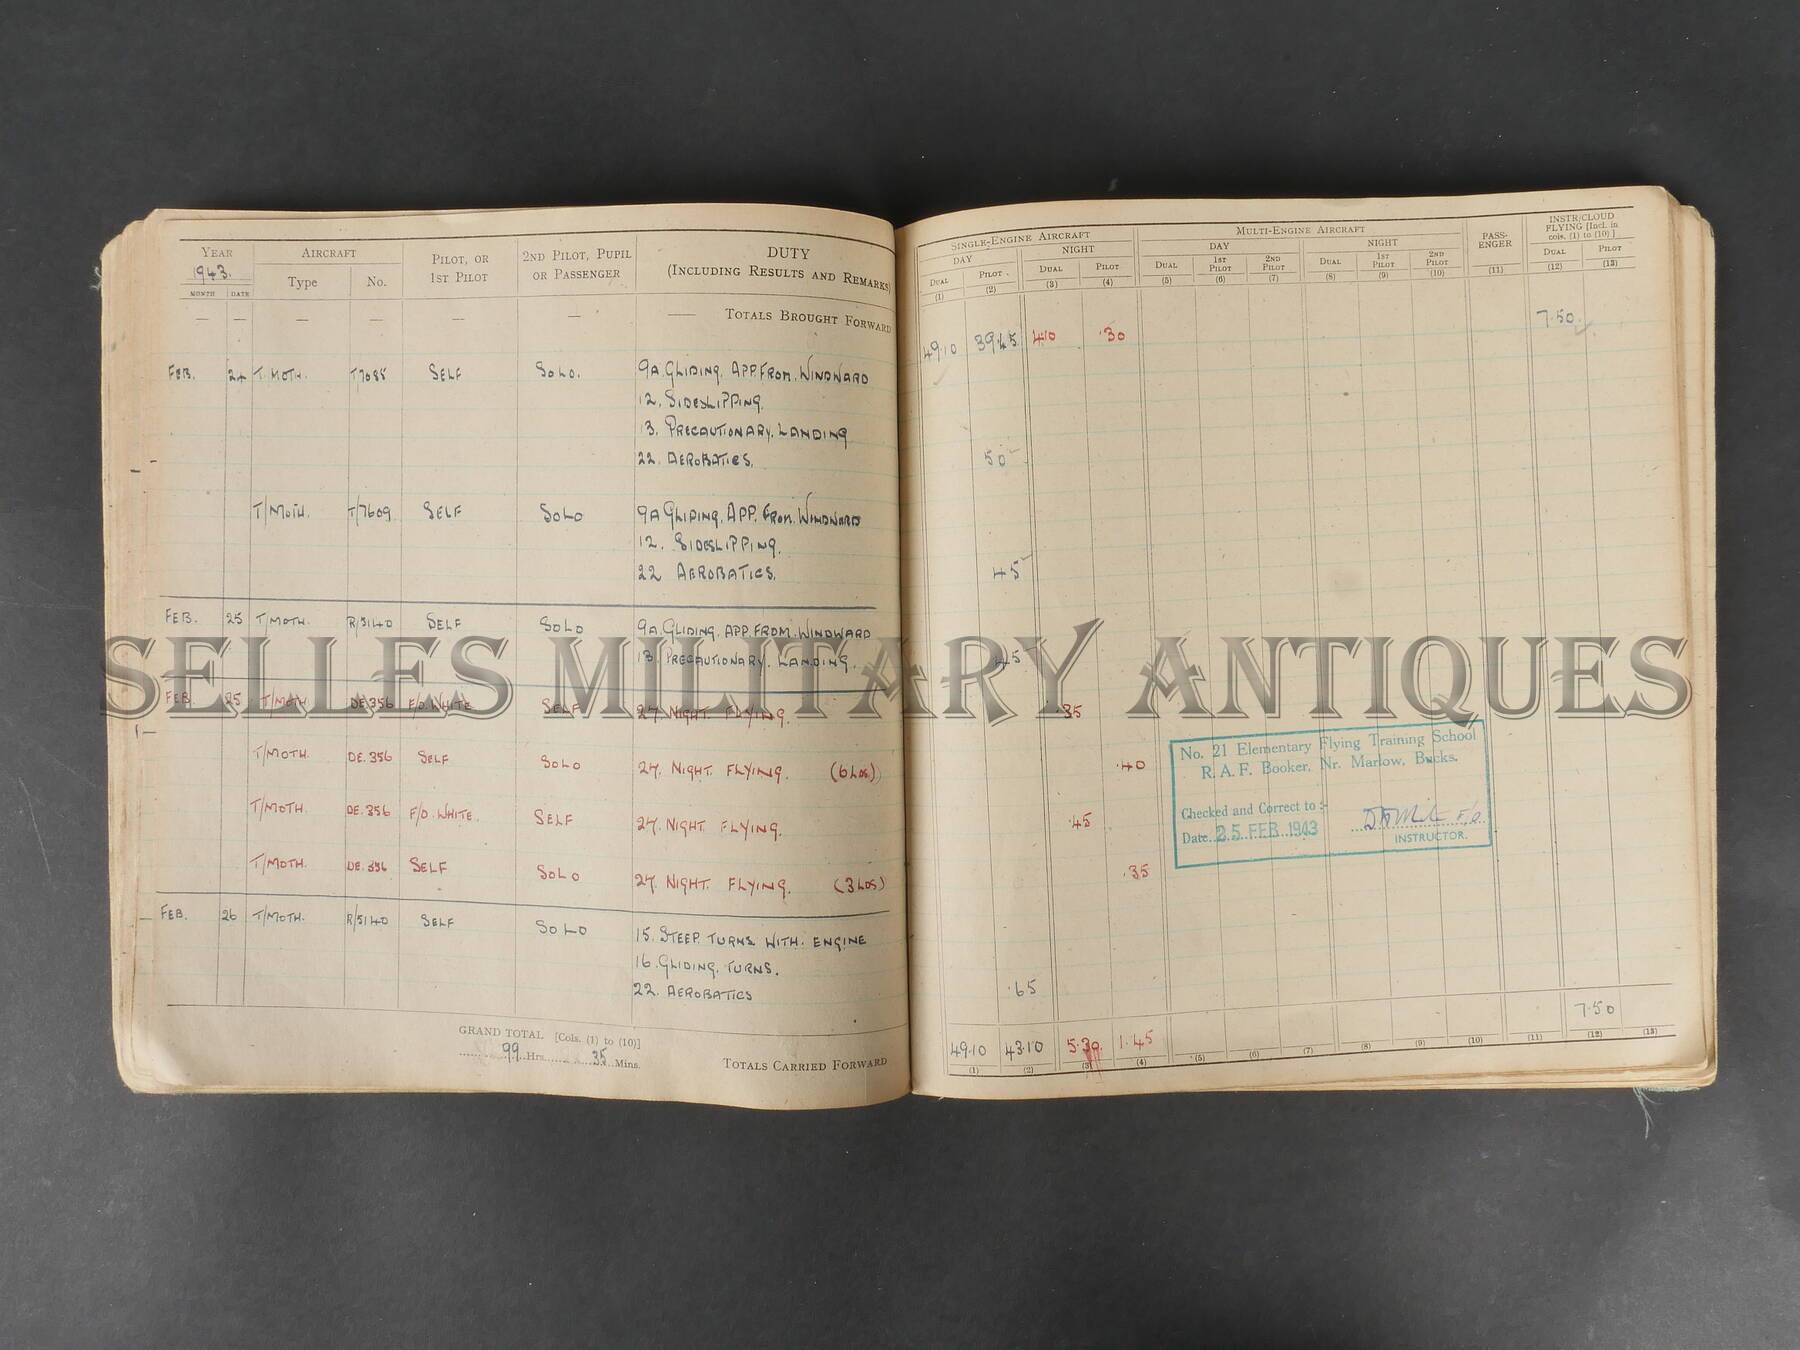 YEAR AIRCRAFT PILOT, OR 1ST PILOT 2ND PILOT, PUPIL OR PASSENGER DUTY (INCLUDING RESULTS AND REMARKS)
1943.
MONTH DATE Type No.
— — — — — — — TOTALS BROUGHT FORWARD
FEB. 24 T.MOTH. T7088 SELF SOLO. 9A GLIDING. APP. FROM. WINDWARD
12. SIDESLIPPING.
13. PRECAUTIONARY. LANDING
22. AEROBATICS.
T/MOTH. T/7609 SELF SOLO 9A GLIDING. APP. FROM. WINDWARD
12. SIDESLIPPING.
22 AEROBATICS.
FEB. 25 T/MOTH. R/5140 SELF SOLO 9A. GLIDING. APP. FROM. WINDWARD
13. PRECAUTIONARY. LANDING.
FEB. 25 T/MOTH DE.356 F/O. WHITE SELF 27. NIGHT. FLYING.
T/MOTH. DE.356 SELF SOLO 27. NIGHT. FLYING. (6 LDS)
T/MOTH. DE.356 F/O. WHITE. SELF 27. NIGHT. FLYING.
T/MOTH. DE.356 SELF SOLO 27. NIGHT. FLYING. (3 LDS)
FEB. 26 T/MOTH. R/5140 SELF SOLO 15. STEEP. TURNS WITH. ENGINE
16. GLIDING. TURNS.
22. AEROBATICS
GRAND TOTAL [Cols. (1) to (10)]
99 Hrs. 35 Mins.
TOTALS CARRIED FORWARD
SINGLE-ENGINE AIRCRAFT MULTI-ENGINE AIRCRAFT PASS-ENGER INSTR/CLOUD FLYING [Incl. in cols. (1) to (10)]
DAY NIGHT DAY NIGHT
DUAL PILOT DUAL PILOT DUAL 1ST PILOT 2ND PILOT DUAL 1ST PILOT 2ND PILOT DUAL PILOT
(1) (2) (3) (4) (5) (6) (7) (8) (9) (10) (11) (12) (13)
49.10 39.45 4.10 .30 7.50
50
45
45
.35
.40
.45
.35
.65
No. 21 Elementary Flying Training School
R. A. F. Booker, Nr. Marlow, Bucks.
Checked and Correct to :-
Date 25 FEB 1943
F/O.
INSTRUCTOR.
49.10 43.10 5.30 1.45 7.50
(1) (2) (3) (4) (5) (6) (7) (8) (9) (10) (11) (12) (13)
SELLES MILITARY ANTIQUES